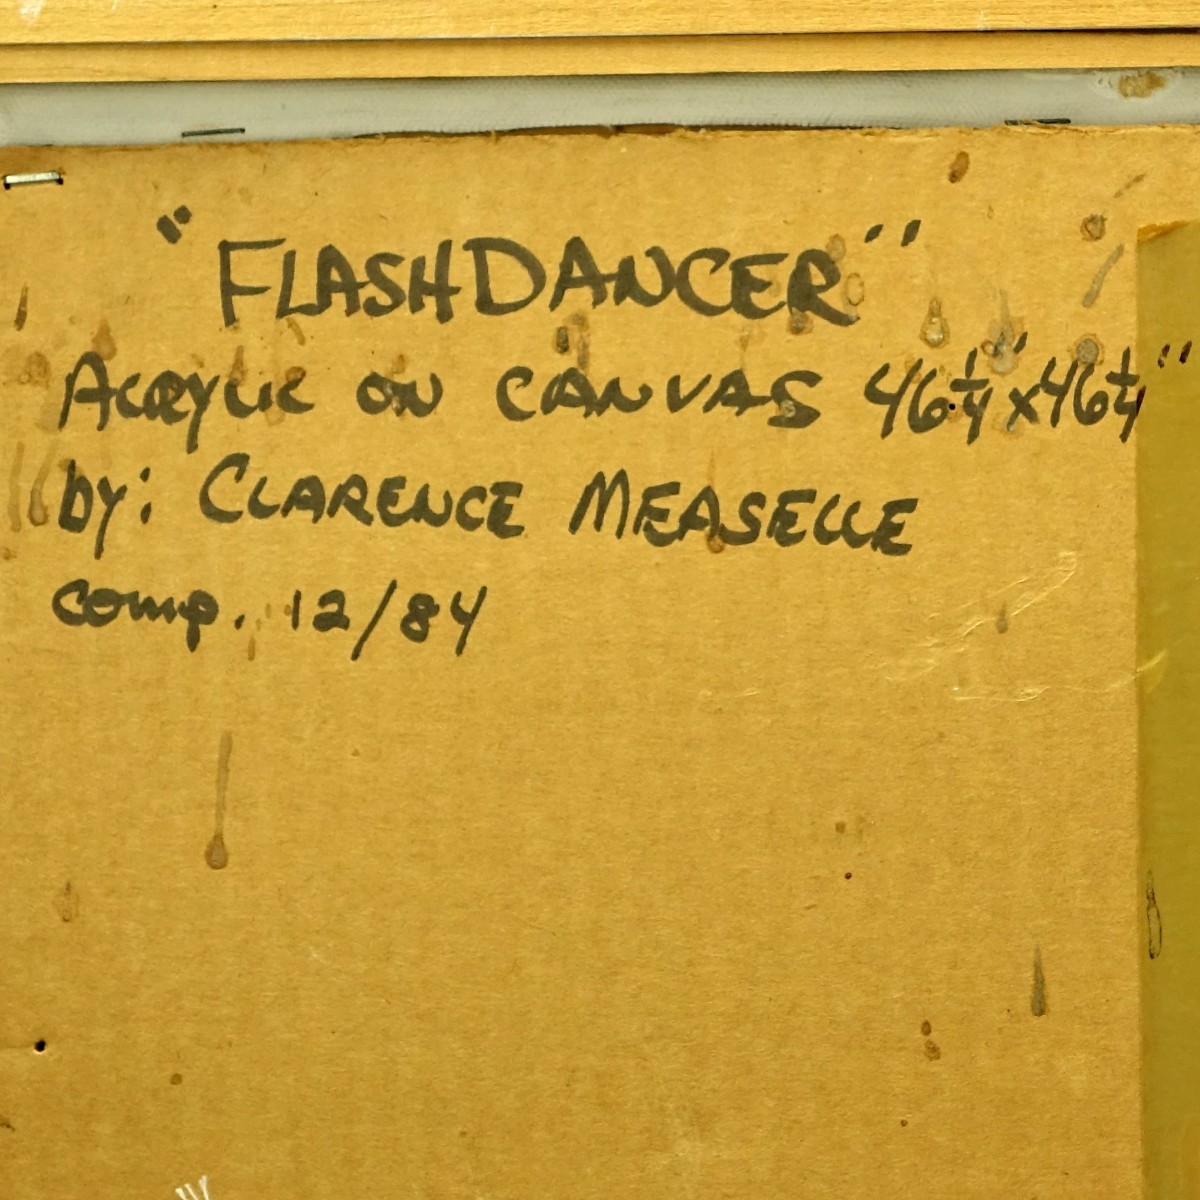 "FLASHDANCER"
ACRYLIC ON CANVAS 46 1/4" x 46 1/4"
by: CLARENCE MEASELLE
comp. 12/84